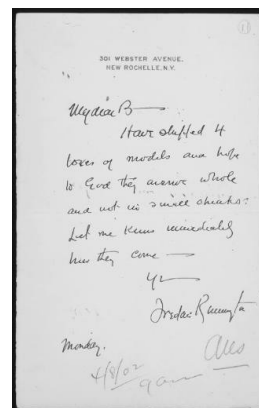 301 WEBSTER AVENUE.
NEW ROCHELLE, N.Y.
My dear B
Have shipped 4
boxes of models and hope
to God they arrive whole
and not in small chunks.
Let me know immediately
how they come —
Yr
Frederic Remington
Monday.
4/8/02
Ans